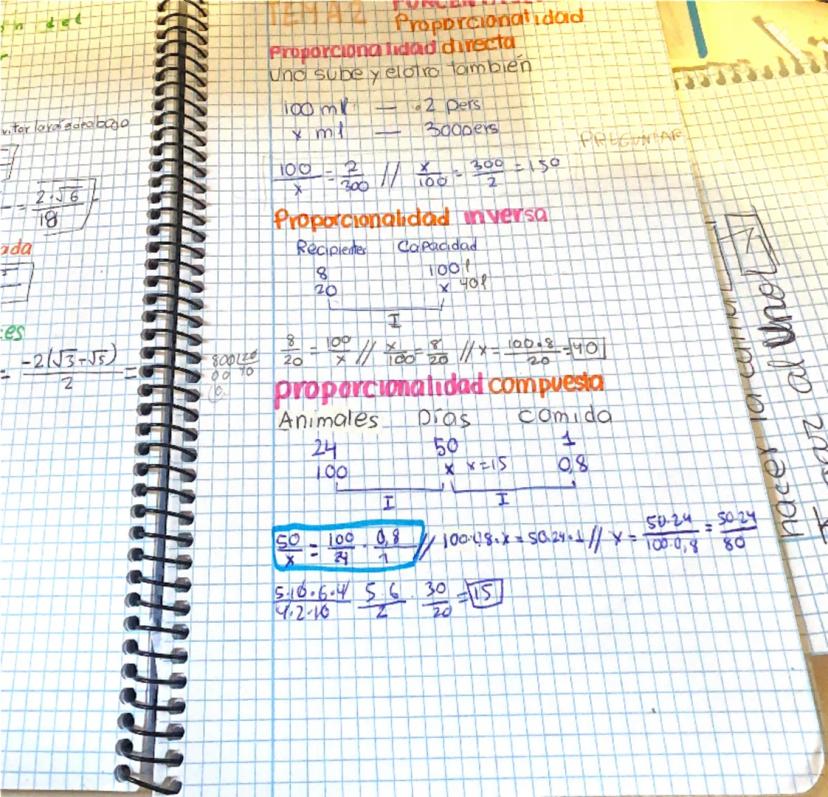 TEMA 2
Proporcionalidad
Proporcionalidad directa
Uno sube y el otro también
100 ml — 2 pers
x ml — 300 pers
PREGUNTAR
100/x = 2/300 // x/100 = 300/2 = 150
Proporcionalidad inversa
Recipientes Capacidad
8 100 l
20 x 40 l
I
8/20 = 100/x // x/100 = 8/20 // x = 100·8/20 = 40
proporcionalidad compuesta
Animales Días comida
24 50 1
100 x x=15 0,8
I I
50/x = 100/24 · 0,8/1 // 100·0,8·x = 50·24·1 // x = 50·24/100·0,8 = 50·24/80
5·10·6·4/4·2·10 5·6/2 30/20 = 15
2·√6/18
-2(√3-√5)/2 =
hacer la